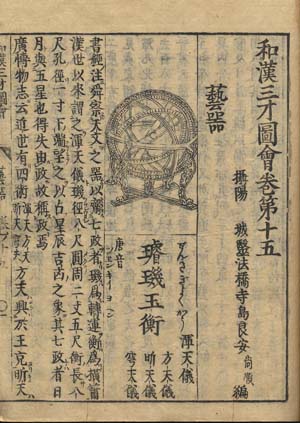 和漢三才圖會卷第十五
攝陽 城醫法橋寺島良安尚順編
藝器
せんきぎよくかう
渾天儀
方天儀
昕天儀
穹天儀
璿璣玉衡
唐音
書經注舜察天文之器以齊七政者璣爲轉運衡爲橫簫
漢世以來謂之渾天儀璣徑八尺圓周二丈五尺衡長八
尺孔徑一寸下端望之以占星辰吉凶之象其七政者日
月與五星也得失由政故稱政焉
廣博物志云近世有四術方天興于王克昕天